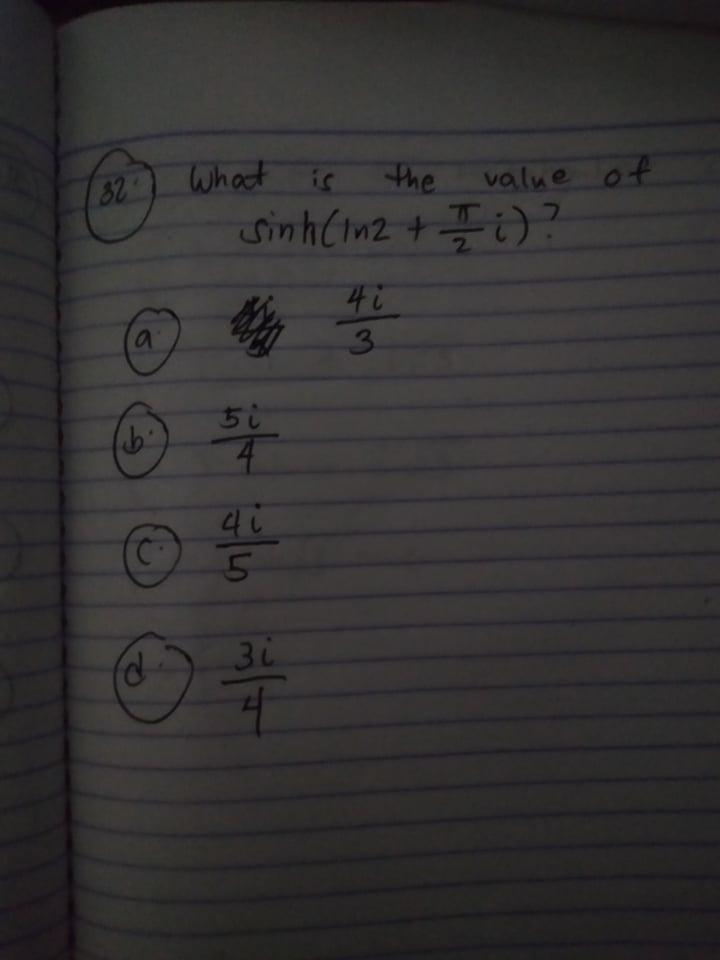 32. What is the value of
sinh(ln2 + π/2 i)?
a. 4i/3
b. 5i/4
c. 4i/5
d. 3i/4